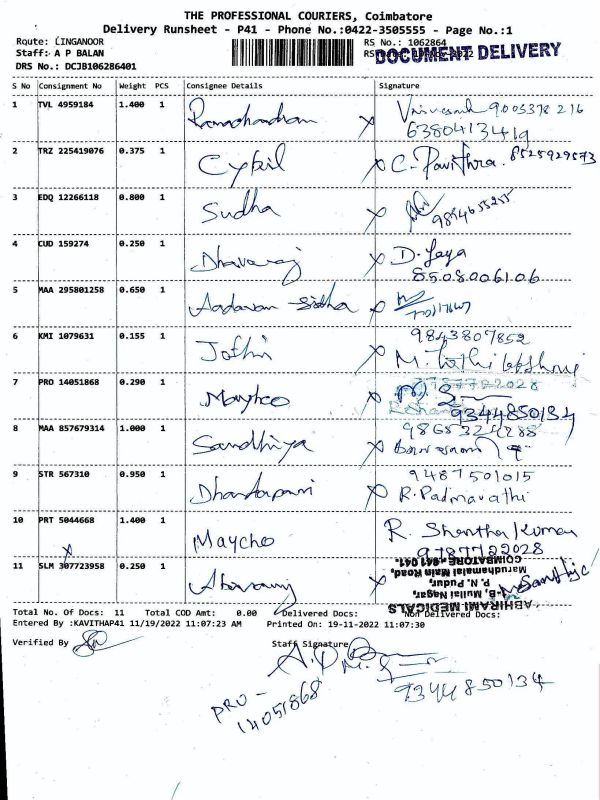 THE PROFESSIONAL COURIERS, Coimbatore
Delivery Runsheet - P41 - Phone No.:0422-3505555 - Page No.:1
Route: LINGANOOR RS No.: 1062864
Staff: A P BALAN DOCUMENT DELIVERY
DRS No.: DCJB106286401
S No Consignment No Weight PCS Consignee Details Signature
1 TVL 4959184 1.400 1 Ramachandran 9003378216
6380413419
2 TRZ 225419076 0.375 1 Cybil C. Pavithra. 8525929573
3 EDQ 12266118 0.800 1 Sudha 9894655255
4 CUD 159274 0.250 1 Dhavaraj D. Jaya
8508006106
5 MAA 295801258 0.650 1 Aadavan Sidha
6 KMI 1079631 0.155 1 Jothi 9843807852
7 PRO 14051868 0.290 1 Maycho 9787722028
9344850134
8 MAA 857679314 1.000 1 Sandhiya
9 STR 567310 0.950 1 Dhandapani 9487501015
R. Padmavathi
10 PRT 5044668 1.400 1 Maycho R. Shentha Kumar
9787722028
11 SLM 307723958 0.250 1
ABHIRAMI MEDICALS
Mullai Nagar,
P. N. Pudur,
Marudhamalai Main Road,
COIMBATORE - 641 041.
Total No. Of Docs: 11 Total COD Amt: 0.00 Delivered Docs: Non Delivered Docs:
Entered By :KAVITHAP41 11/19/2022 11:07:23 AM Printed On: 19-11-2022 11:07:30
Verified By Staff Signature
PRO -
14051868
9344850134